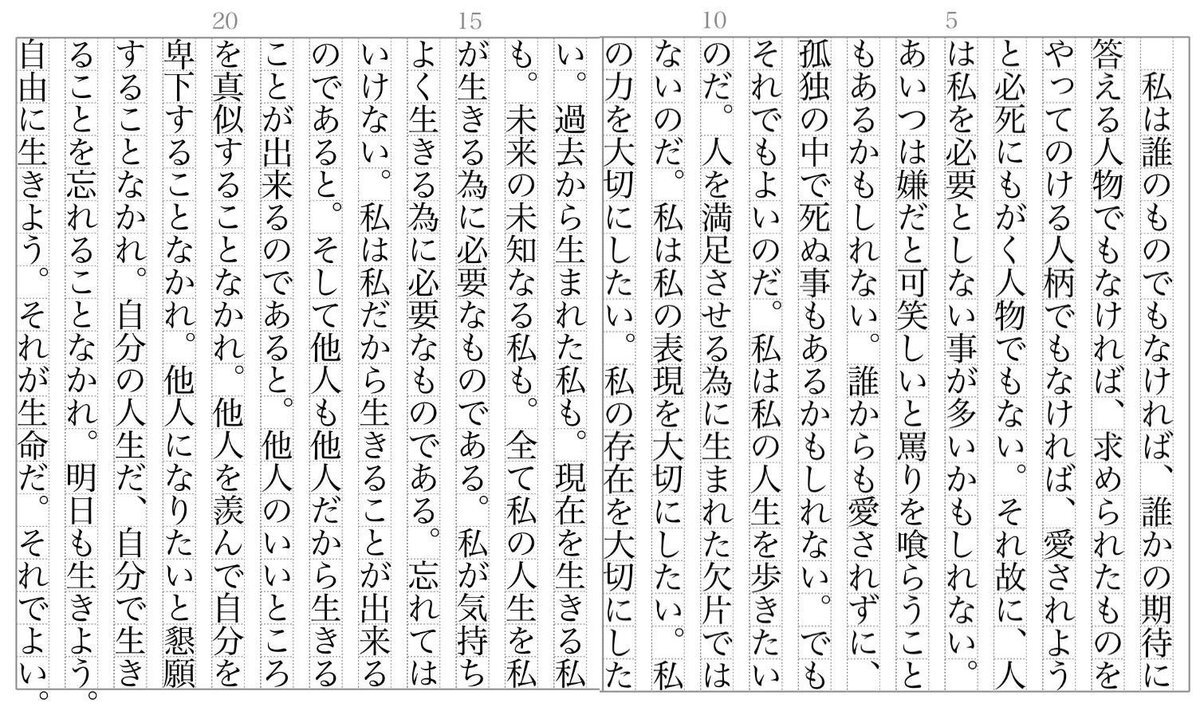 私は誰のものでもなければ、誰かの期待に
答える人物でもなければ、求められたものを
やってのける人柄でもなければ、愛されよう
と必死にもがく人物でもない。それ故に、人
は私を必要としない事が多いかもしれない。
あいつは嫌だと可笑しいと罵りを喰らうこと
もあるかもしれない。誰からも愛されずに、
孤独の中で死ぬ事もあるかもしれない。でも
それでもよいのだ。私は私の人生を歩きたい
のだ。人を満足させる為に生まれた欠片では
ないのだ。私は私の表現を大切にしたい。私
の力を大切にしたい。私の存在を大切にした
い。過去から生まれた私も。現在を生きる私
も。未来の未知なる私も。全て私の人生を私
が生きる為に必要なものである。私が気持ち
よく生きる為に必要なものである。忘れては
いけない。私は私だから生きることが出来る
のであると。そして他人も他人だから生きる
ことが出来るのであると。他人のいいところ
を真似することなかれ。他人を羨んで自分を
卑下することなかれ。他人になりたいと懇願
することなかれ。自分の人生だ、自分で生き
ることを忘れることなかれ。明日も生きよう。
自由に生きよう。それが生命だ。それでよい。
5
10
15
20